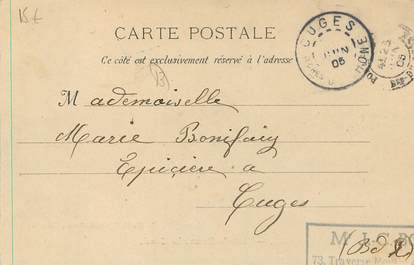 15 €
CARTE POSTALE
Ce côté est exclusivement réservé à l'adresse
CUGES
JUIN
06
Mademoiselle
Marie Bonifay
Epicière a
Cuges
(BdR)
73, Traverse